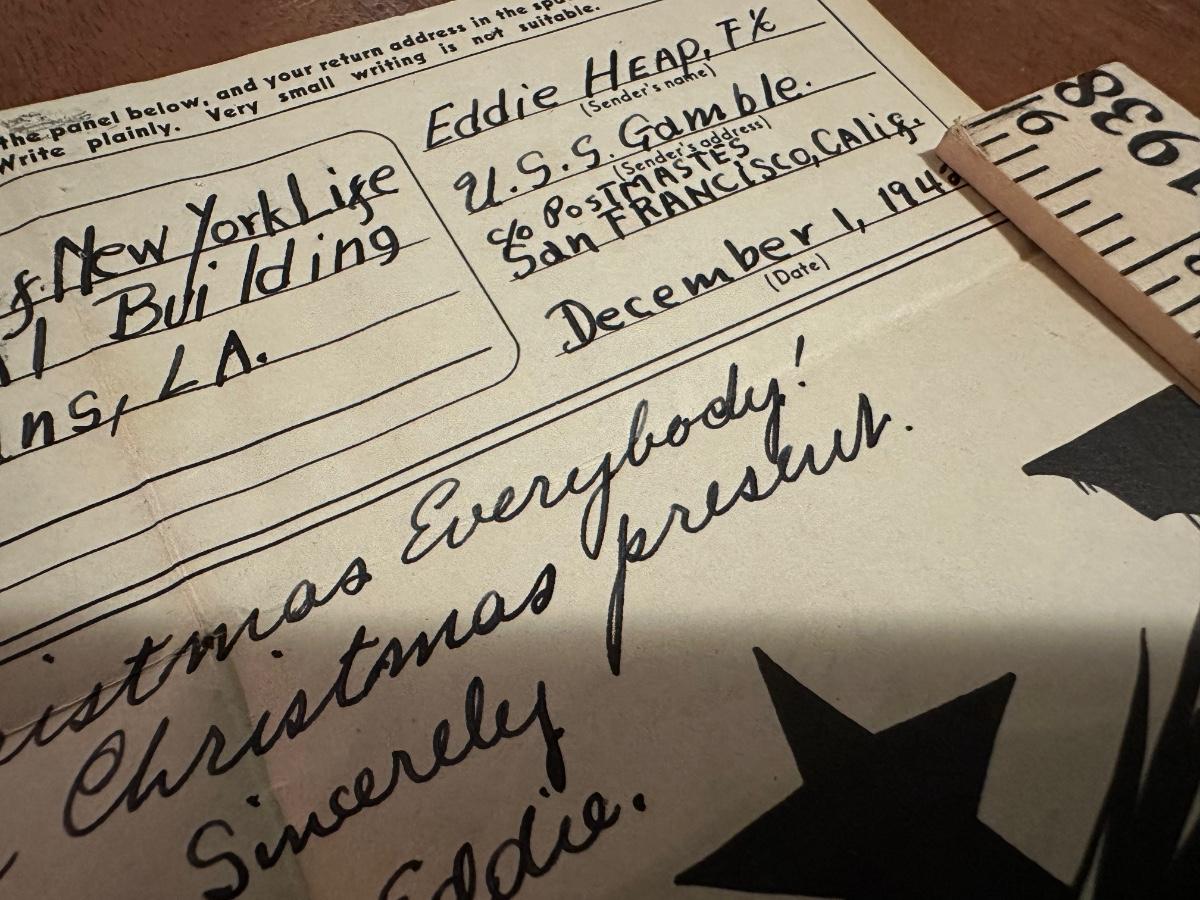 the panel below, and your return address in the
Write plainly. Very small writing is not suitable.
Eddie HEAP, F
(Sender's name)
U.S.S. Gamble.
(Sender's address)
c/o POSTMASTES
San FRANCISCO, CALif.
December 1, 194
(Date)
New York Life
Building
ns, LA.
istmas Everybody!
Christmas present.
Sincerely
Eddie.
16
8
39